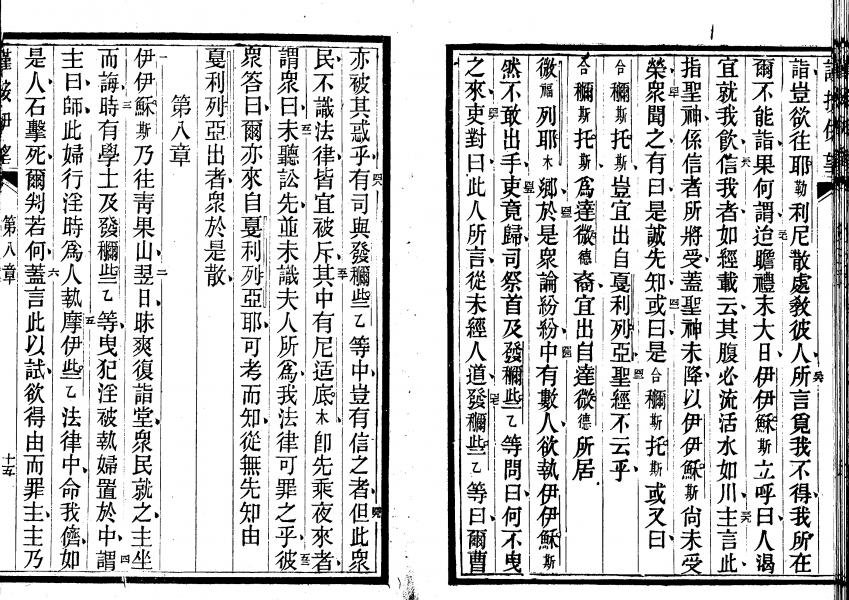 詣豈欲往耶勒利尼散處教彼人所言覓我不得我所在
爾不能詣果何謂迨瞻禮末大日伊伊穌斯立呼曰人渴
宜就我飲信我者如經載云其腹必流活水如川主言此
指聖神係信者所將受蓋聖神未降以伊伊穌斯尚未受
榮衆聞之有曰是誠先知或曰是合穪斯托斯或又曰
合穪斯托斯豈宜出自戛利列亞聖經不云乎
合穪斯托斯爲達微德裔宜出自達微德所居
微福列耶木鄉於是衆論紛紛中有數人欲執伊伊穌斯
然不敢出手吏竟歸司祭首及發穪些乙等問曰何不曳
之來吏對曰此人所言從未經人道發穪些乙等曰爾曹
亦被其惑乎有司與發穪些乙等中豈有信之者但此衆
民不識法律皆宜被斥其中有尼适底木卽先乘夜來者
謂衆曰未聽訟先並未識夫人所爲我法律可罪之乎彼
衆答曰爾亦來自戛利列亞耶可考而知從無先知由
戛利列亞出者衆於是散
第八章
伊伊穌斯乃往青果山翌日昧爽復詣堂衆民就之主坐
而誨時有學士及發穪些乙等曳犯淫被執婦置於中謂
主曰師此婦行淫時爲人執摩伊些乙法律中命我儕如
是人石擊死爾判若何蓋言此以試欲得由而罪主主乃
第八章
十五